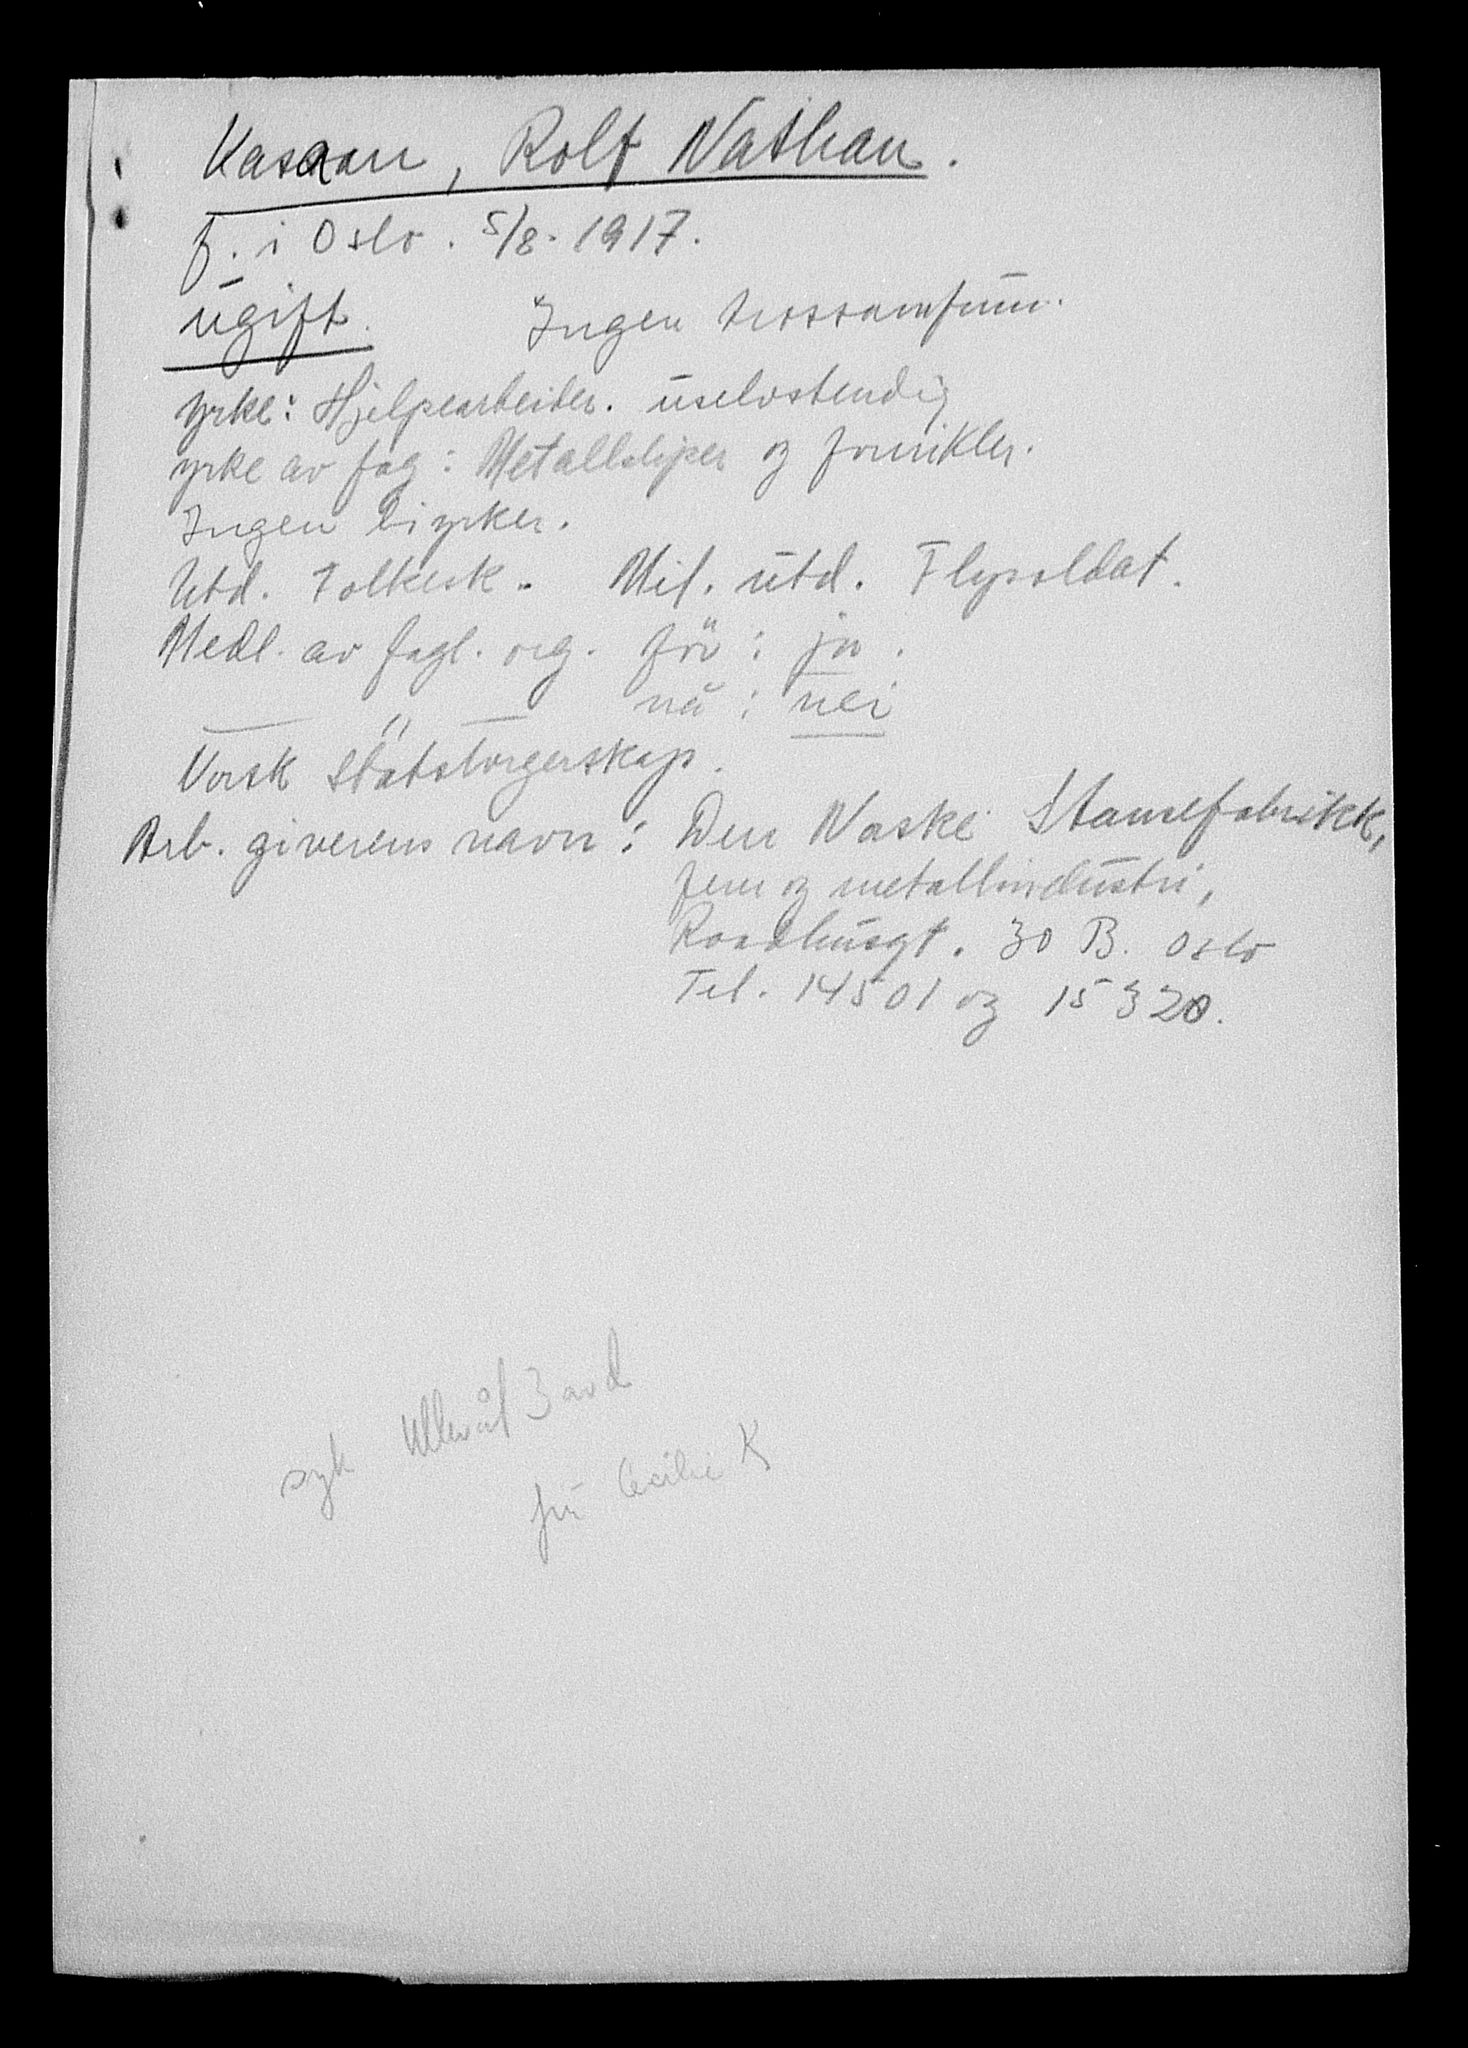 Kasaan, Rolf Nathan.
f. i Oslo. 5/8. 1917.
ugift. Ingen trossamfunn.
yrke: Hjelpearbeider. uselvstendig
yrke av fag: Metallsliper og fornikler.
Ingen biyrker.
Utd. Folkesk. Mil. utd. Flysoldat.
Medl. av fagl. org. för: ja.
— " — nu: nei
Norsk Statsborgerskap.
Arb. giverens navn: Den Norske Stansefabrikk,
jern og metallindustri,
Raadhusgt. 30 B. Oslo
Tel. 14501 og 15320.
syk Ullevål 3 avd
fru Cecilie K